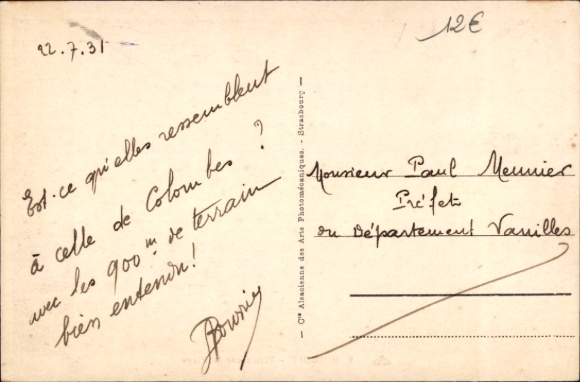 22.7.31
12€
Est-ce qu'elles ressemblent
à celle de Colombes ?
avec les 900 m de terrain
bien entendu !
Monsieur Paul Meunier
Préfet
du Département Vanilles
— Cie Alsacienne des Arts Photomécaniques. - Strasbourg —